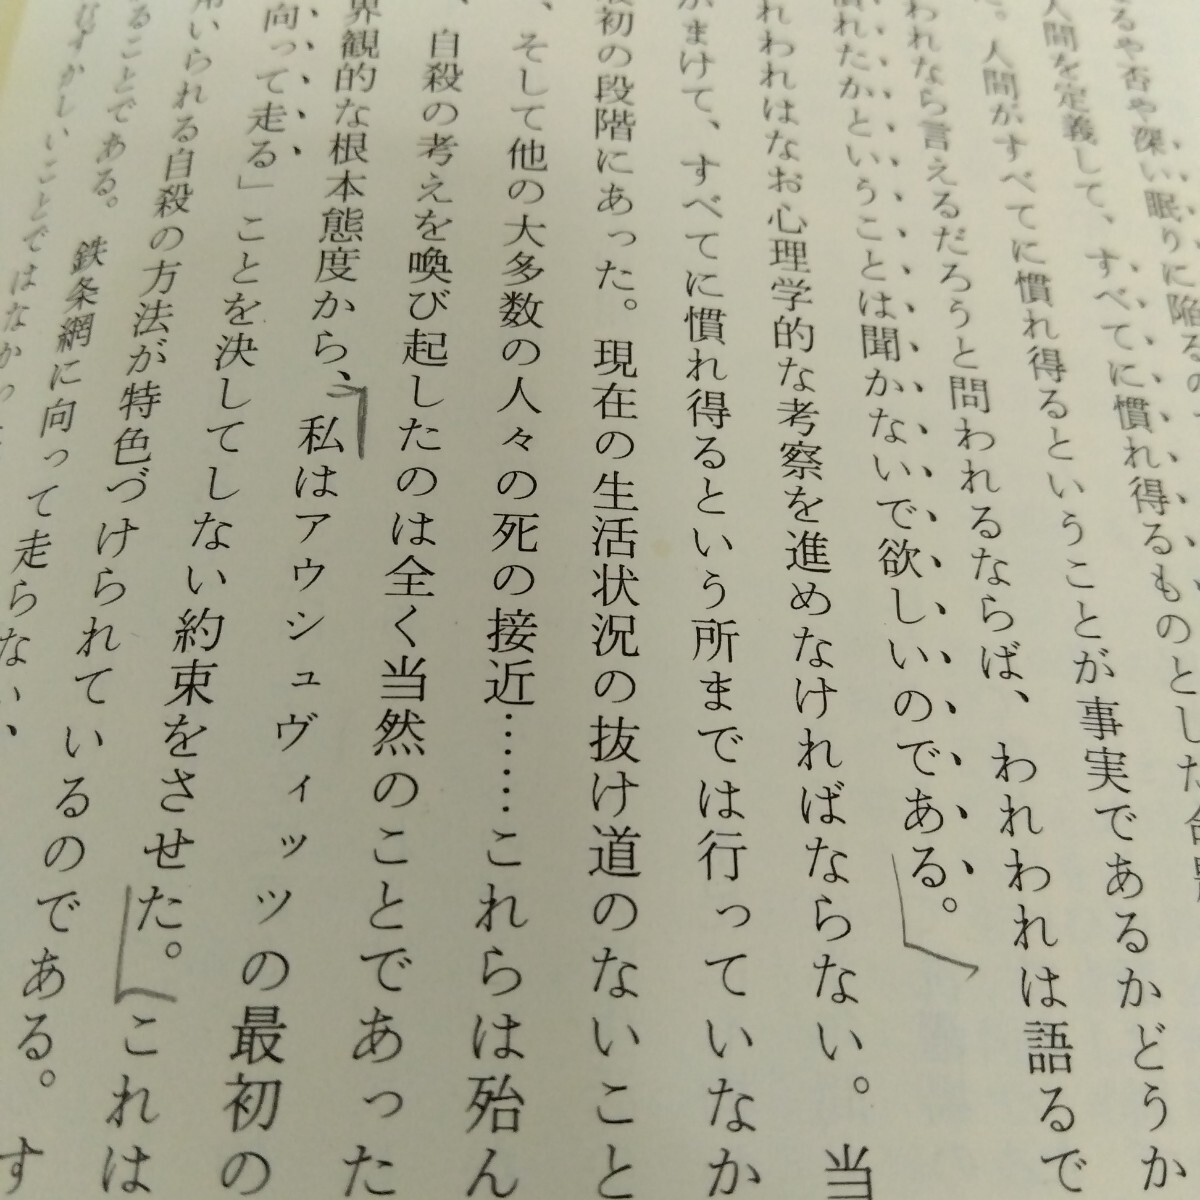 るや否や深い眠りに陥るの、
人間を定義して、すべてに慣れ得るものとした
。人間がすべてに慣れ得るということが事実であるかどうか
われなら言えるだろうと問われるならば、われわれは語るで
慣れたかということは聞かないで欲しいのである。
れわれはなお心理学的な考察を進めなければならない。当
がまけて、すべてに慣れ得るという所までは行っていなか
最初の段階にあった。現在の生活状況の抜け道のないこと
、そして他の大多数の人々の死の接近……これらは殆ん
、自殺の考えを喚び起したのは全く当然のことであった
界観的な根本態度から、私はアウシュヴィッツの最初の
向って走る」ことを決してしない約束をさせた。これは
用いられる自殺の方法が特色づけられているのである。す
ることである。鉄条網に向って走らない、
むずかしいことではなかっ